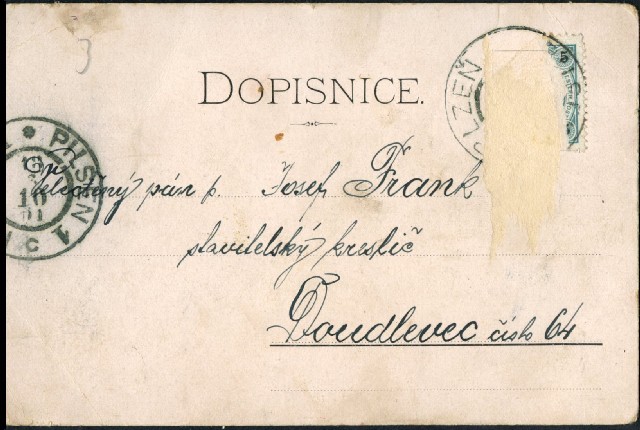 3
LZEŇ
5
DOPISNICE.
PILSEN 1
10
01
c
pán p. Josef Frank
stavitelský kreslič
Doudlevec číslo 64